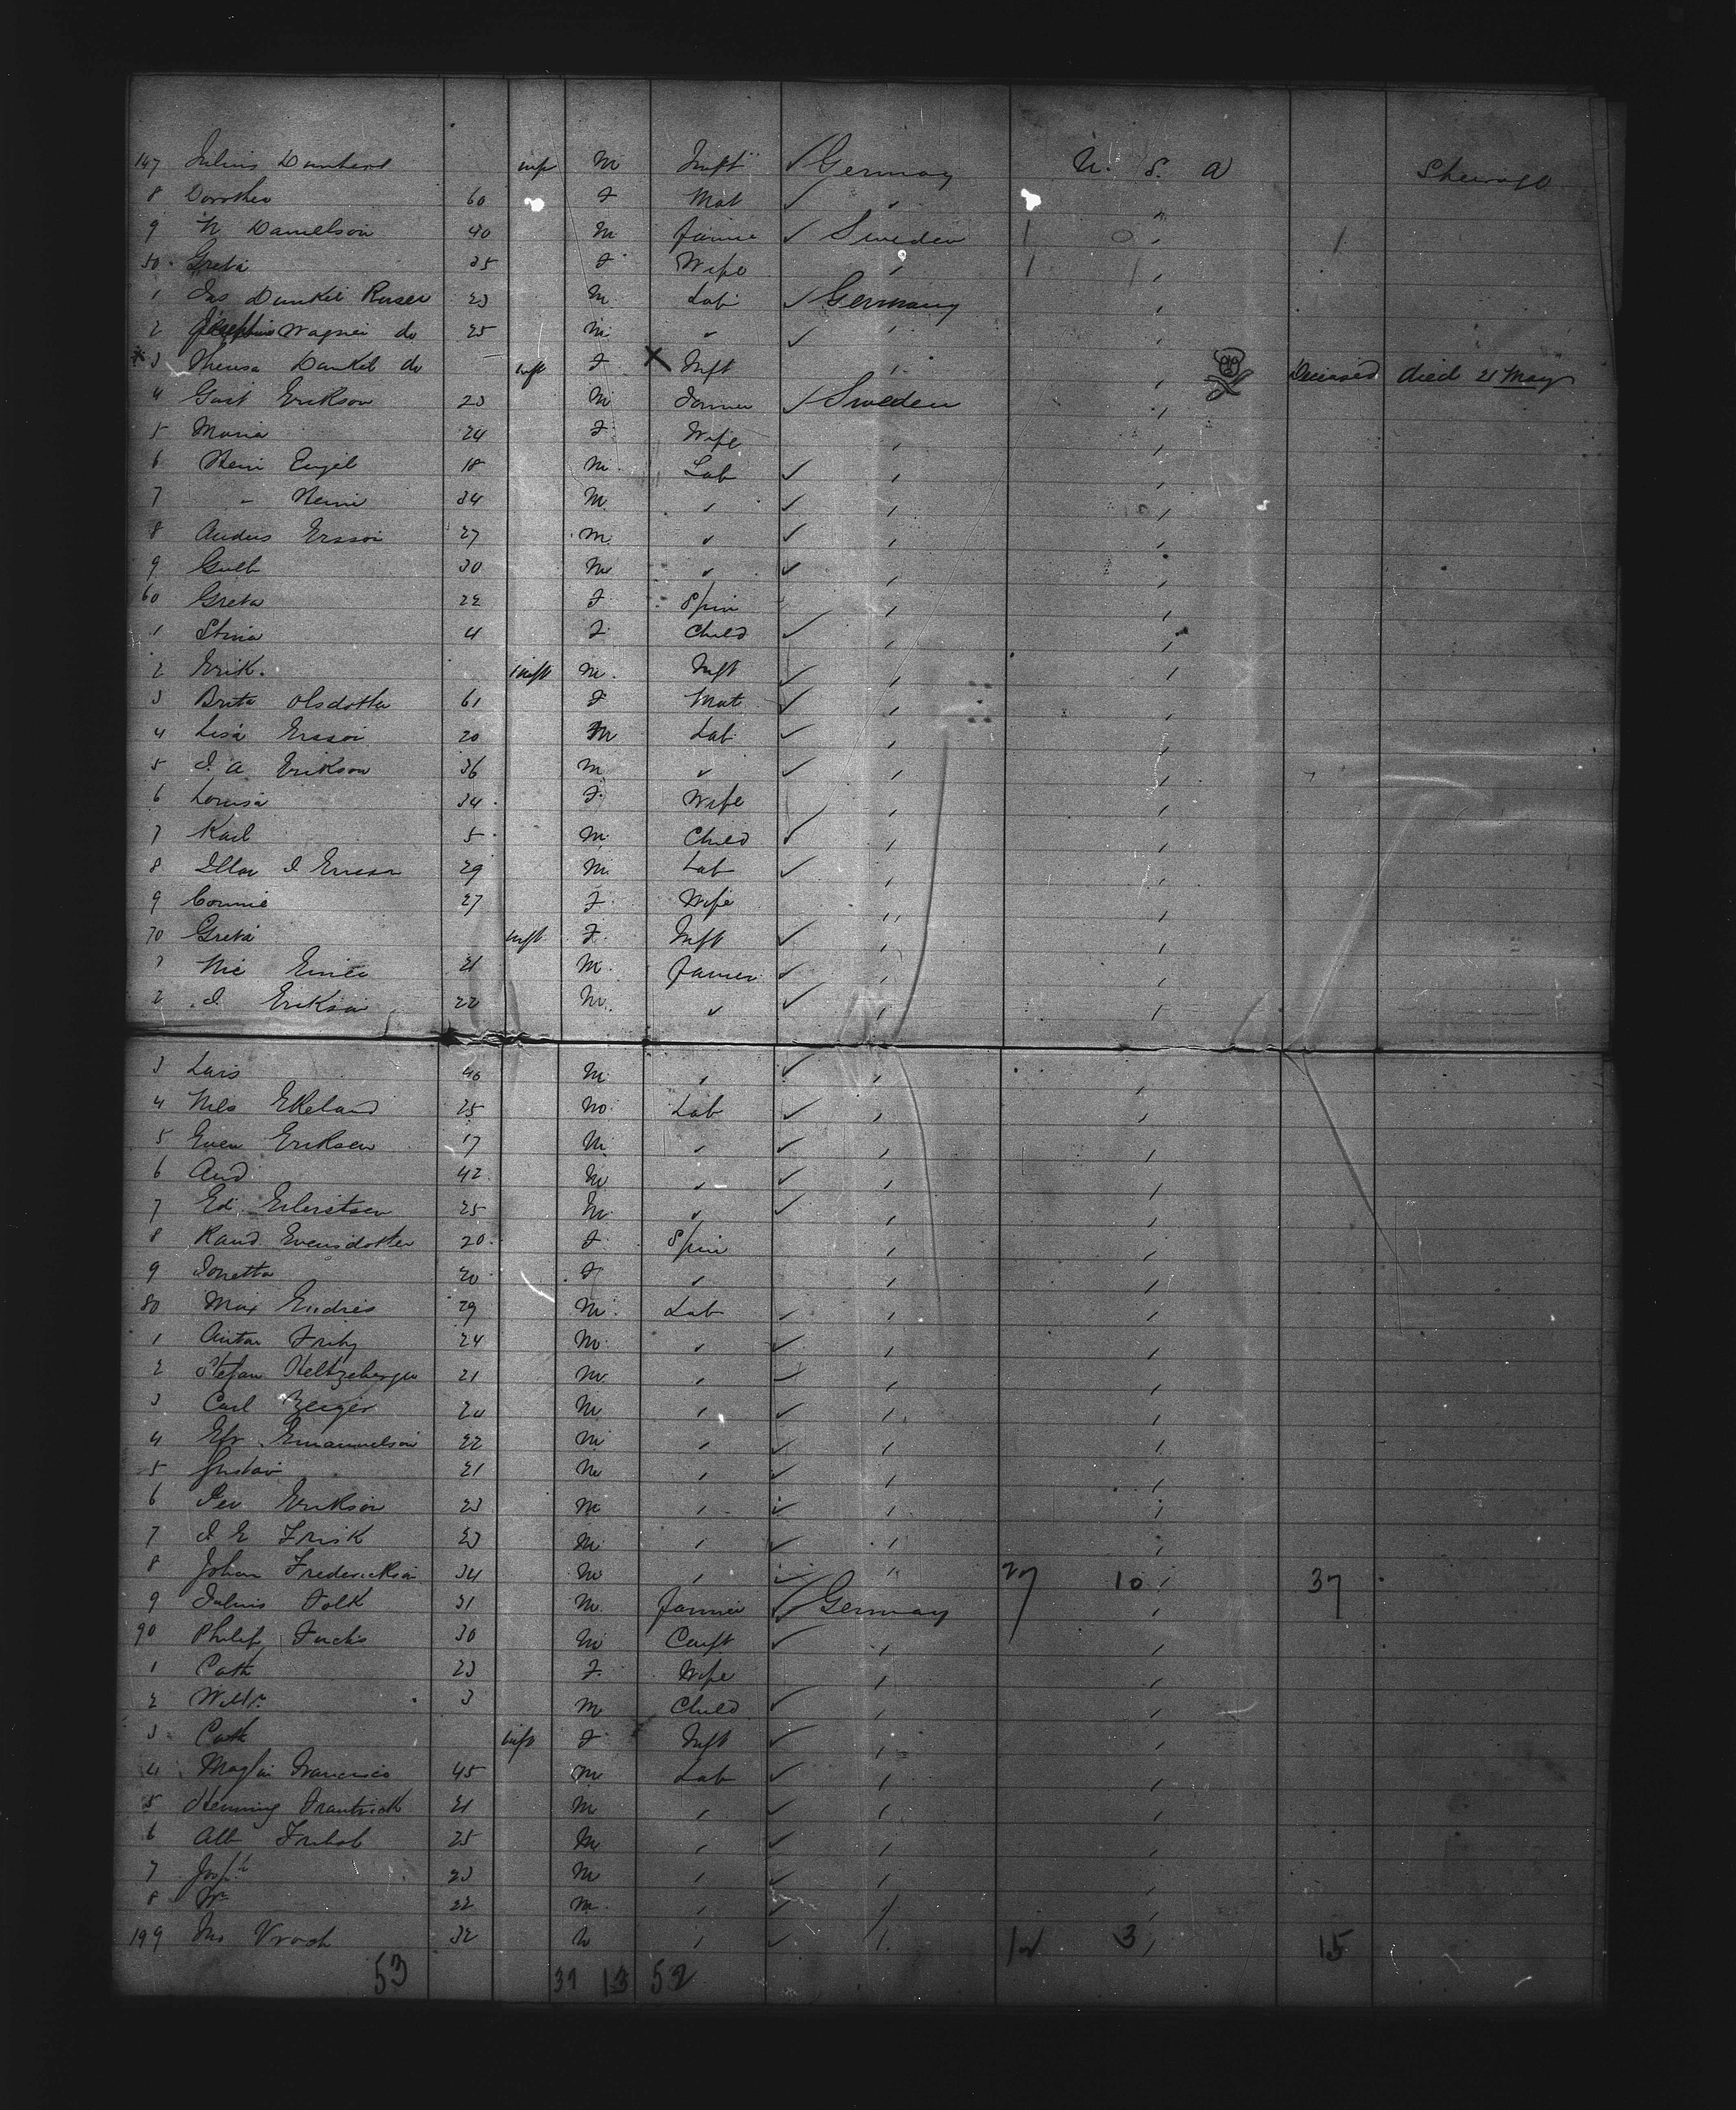 147 Julius Dannhard inf M Inft ✓ Germany U. S. A
8 Dorothea 60 F Mat ✓ "
9 N Danielson 40 M Farmer ✓ Sweden 1 0 " 1
50 Greta 35 F Wife " 1 1 "
1 Jas Dunkel 23 M Lab ✓ Germany "
2 Wagner do 25 M " ✓ " "
3 Theresa Dunkel do inft F X Inft " " Deceased died 21 May
4 Gust Erikson 23 M Farmer ✓ Sweden "
5 Maria 24 F Wife " "
6 Engel 18 M Lab ✓ " "
7 " 34 M " ✓ " "
8 Anders Ersson 27 M " ✓ " "
9 30 M " ✓ " "
60 Greta 22 F Spin " "
1 Stina 4 F Child ✓ " "
2 Erik inft M Inft ✓ " "
3 Brita Olsdotter 61 F Mat ✓ " "
4 Lisa Ersson 20 M Lab ✓ " "
5 J. A. Erikson 36 M " ✓ " "
6 Lovisa 34 F Wife " "
7 Karl 5 M Child ✓ " "
8 29 M Lab ✓ " "
9 27 F Wife " "
70 Greta inft F Inft ✓ " "
21 M Farmer ✓ " "
2 J. Erikson 22 M " ✓ " "
3 Lars 40 M " ✓ " "
4 Nils Ekeland 25 M Lab ✓ " "
5 Even Eriksen 17 M " ✓ " "
6 And 42 M " ✓ " "
7 Ed. 25 M " ✓ " "
8 Rand. Evensdotter 20 F Spin " "
9 Jonetta 20 F " " "
80 Max Endres 29 M Lab ✓ " "
1 Anton Fritz 24 M " ✓ " "
2 Stefan Heltzeberger 21 M " ✓ " "
3 Carl Zeiger 20 M " ✓ " "
4 Efr Emanuelson 22 M " ✓ " "
5 Gustav 21 M " ✓ " "
6 Per Erikson 23 M " ✓ " "
7 J E Frisk 23 M " ✓ " "
8 Johan Frederickson 34 M " ✓ " 27 10 " 37
9 Julius Folk 31 M Farmer ✓ Germany "
90 Philip Fuchs 30 M ✓ " "
1 Cath 23 F Wife " "
2 Willm 3 M Child ✓ " "
3 Cath inft F Inft ✓ " "
4 Francisco 45 M Lab ✓ " "
5 Henning 21 M " ✓ " "
6 Alb 25 M " ✓ " "
7 Josph 23 M " ✓ " "
8 Wm 22 M " ✓ " "
199 32 M " ✓ " 12 3 " 15
53 39 13 52